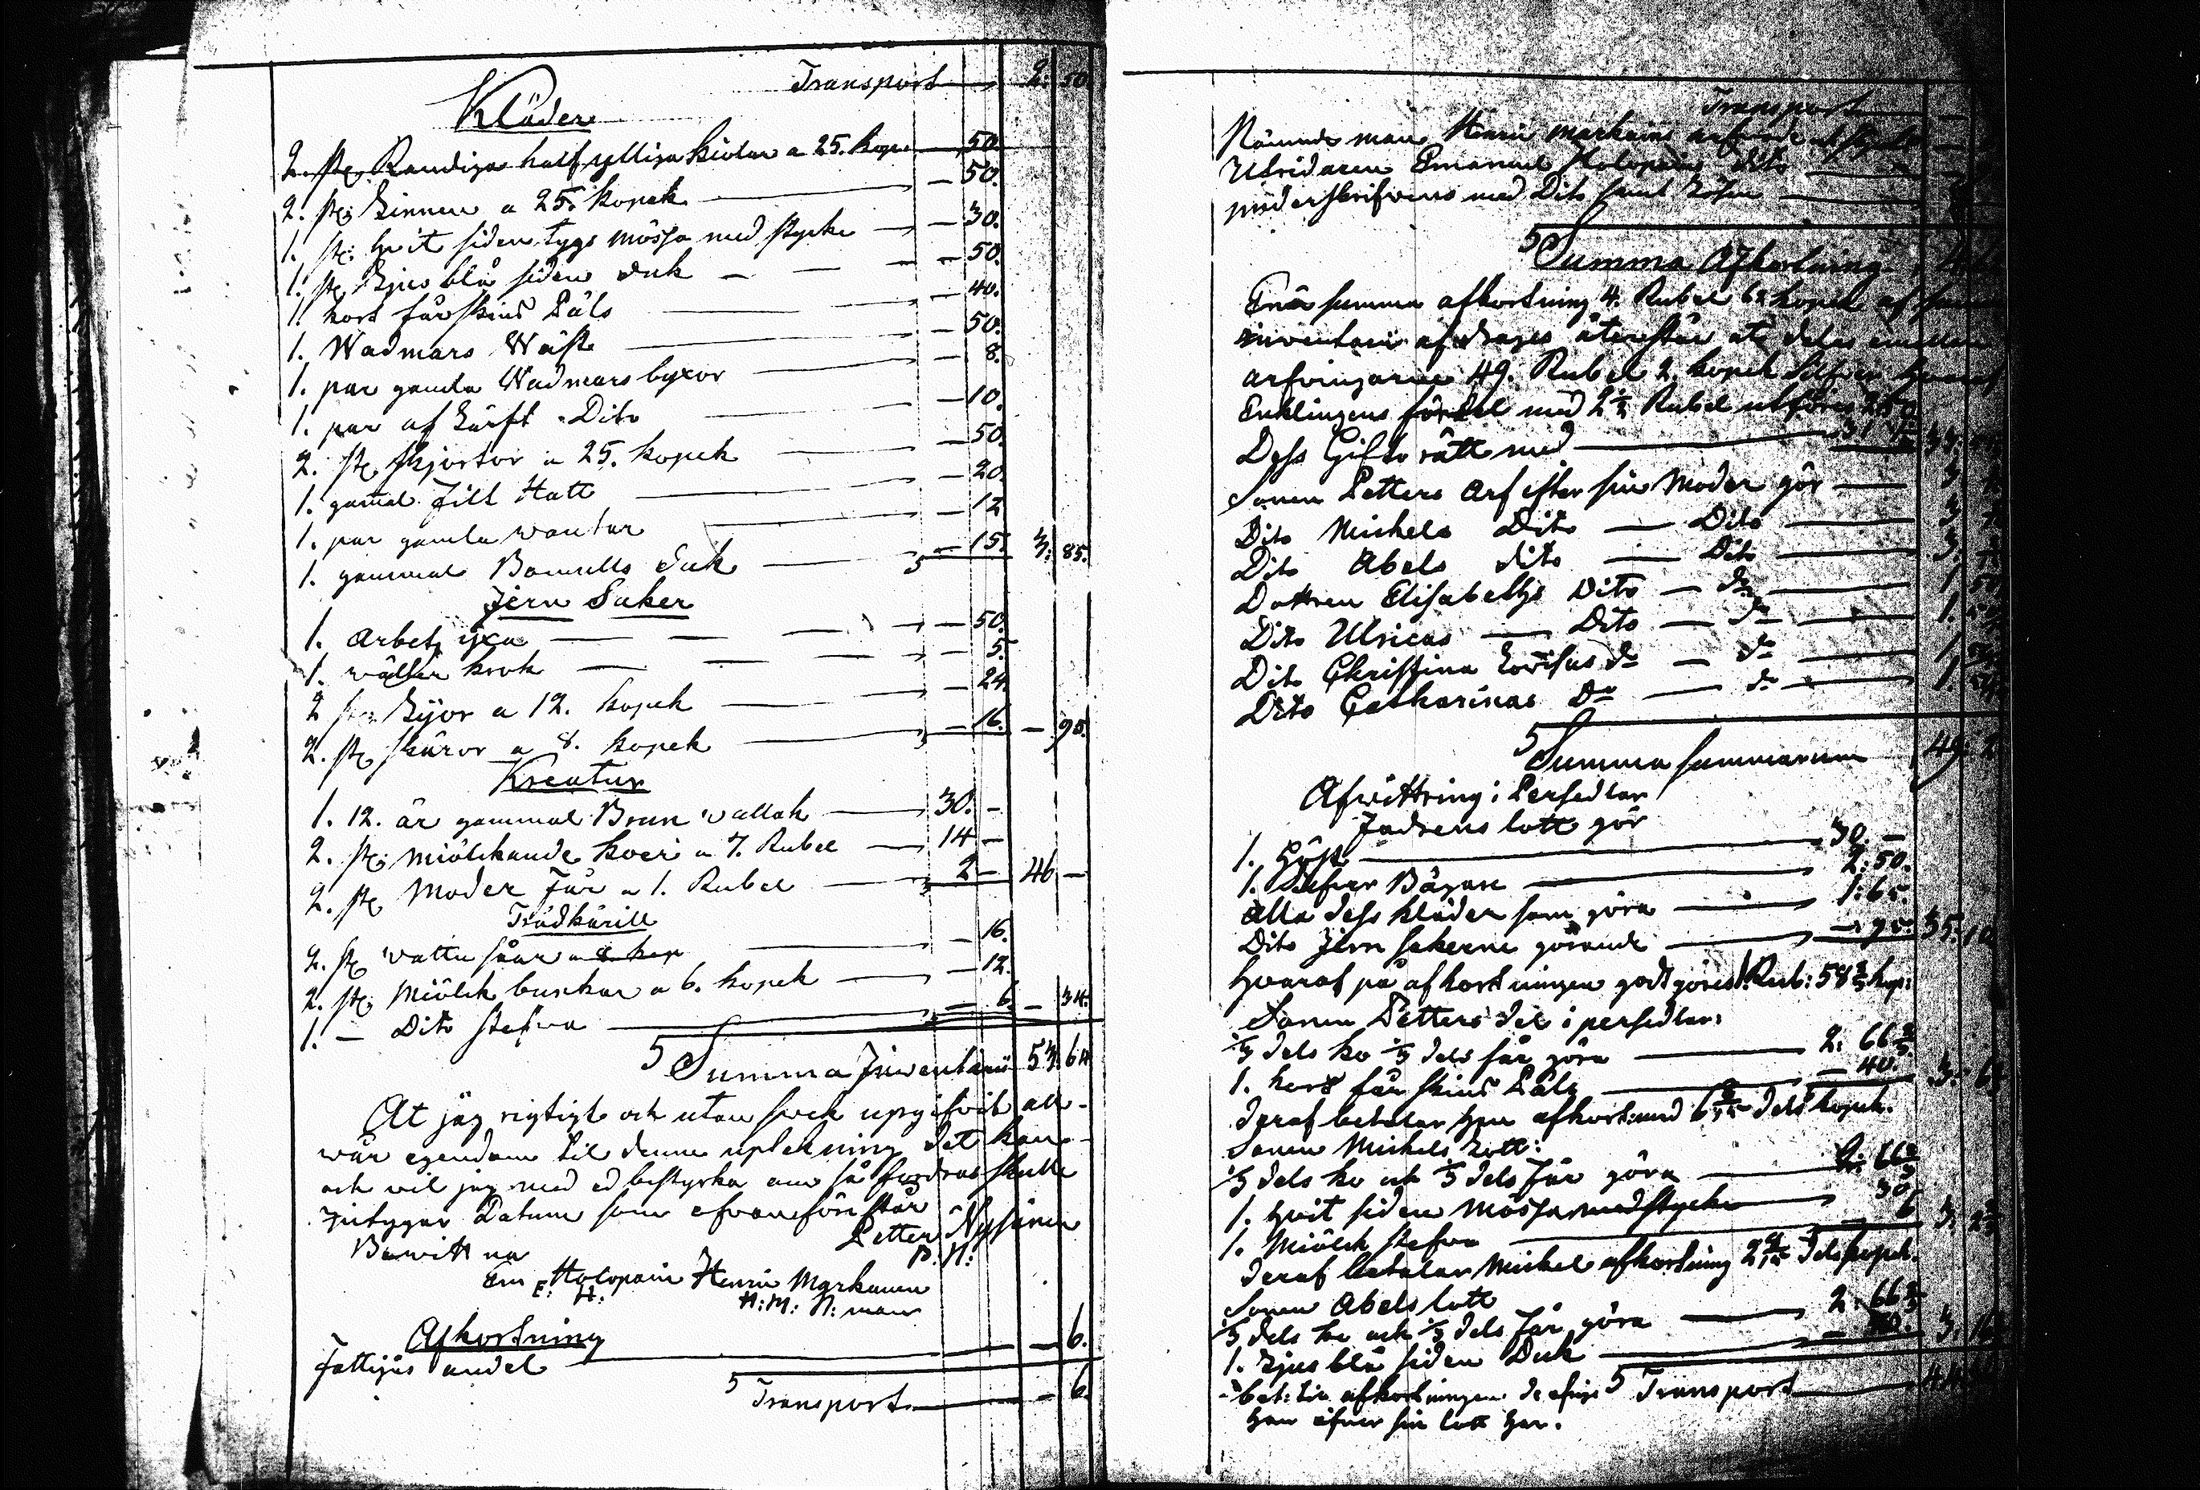 Transport — 2: 50
Kläder
2. st: Randiga half ylliga kiolar a 25. kop: — 50.
2. st: Linnen a 25. kopek — 50.
1. st: hvit siden tygs mössa med stycke — 30.
1. st: Ljus blå siden duk — 50.
1. kort fårskins Päls — 40.
1. Wadmars Wäst — 50.
1. par gamla Wadmars byxor — 8.
1. par af Lärft Dito — 10.
2. st: skjortor a 25. kopek — 50.
1. gamal Filt Hatt — 20.
1. par gamla wantar — 12
1. gammal Bomulls duk — 15. 3: 85.
Jern Saker
1. Arbets yxa — 50.
1. krok — 5.
2 st: Lijor a 12. kopek — 24
2. st: skäror a 8. kopek — 16. — 95.
Kreatur
1. 12. år gammal Brun vallak — 30. —
2. st: miölckande koer a 7. Rubel — 14 —
2. st: Moder Får a 1. Rubel — 2 — 46 —
Trädkärill
2. st: vattu såar a 8 kop — 16.
2. st: Miölck bunkar a 6. kopek — 12.
1. — Dito stefva — 6. — 34.
Summa Inventarii 53. 64
At jag rigtigt och utan svek upgifvit all
wår egendom til denna uptekning det kan
och vil jag med ed bestyrka om så fordras skulle
intygar Datum som ofvanföre står
Petter Nyssönen
Bewittna P: N:
Em Holopain Henric Markanen
E: H: H: M: N: man
Afkortning
Fattigas andel — 6.
Transport — 6.
Transport
Nämnde man Henric Markains arfvode
Utridaren Emanuel Holopains Dito
underskrifvens med Dito samt Lösen
Summa Afkortning
Enär summa afkortning 4. Rubel 62 kopek af
inventarii afdrages återstår at delas emellan
arfvingarne 49. Rubel 2. kopek Silfver hvaraf
Enklingens fördel med 2 1/2 Rubel utföres
Dess Gifto rätt med
Sonen Petters Arf efter sin Moder gör
Dito Mickels Dito — Dito
Dito Abels dito — Dito
Dottren Elisabeths Dito — do
Dito Ulricas — Dito — do
Dito Christina Lovisas do — do
Dito Catharinas Do — do
Summa summarum 49: 2
Afwittring i Persedlar
Fadrens lott gör
1. Häst — 30. —
1. Silfver Bägare — 2: 50.
Alla dess kläder som göra — 1: 65.
Dito Jern sakerne görande — 95. 35. 10
hvaraf på afkortningen godtgöres 1 Rub: 58 2/3 kop:
Sonen Petters del i persedlar:
1/3 dels ko 1/3 dels får göra — 2: 66 2/3
1. kort får skins Päls — 40.
deraf betalar han afkort: med dels kopek.
Sonen Mickels Lott:
1/3 dels ko och 1/3 dels Får göra — 2: 66 2/3
1. hvit siden Mössa med stycke — 30.
1. Miölck stefva — 6
deraf betalar Mickel afkortning dels kopek.
Sonen Abels lott
1/3 dels ko och 1/3 dels Får göra — 2: 66 2/3
1. Ljus blå siden Duk
bet: til afkortningen Transport
han öfver sin lott har.